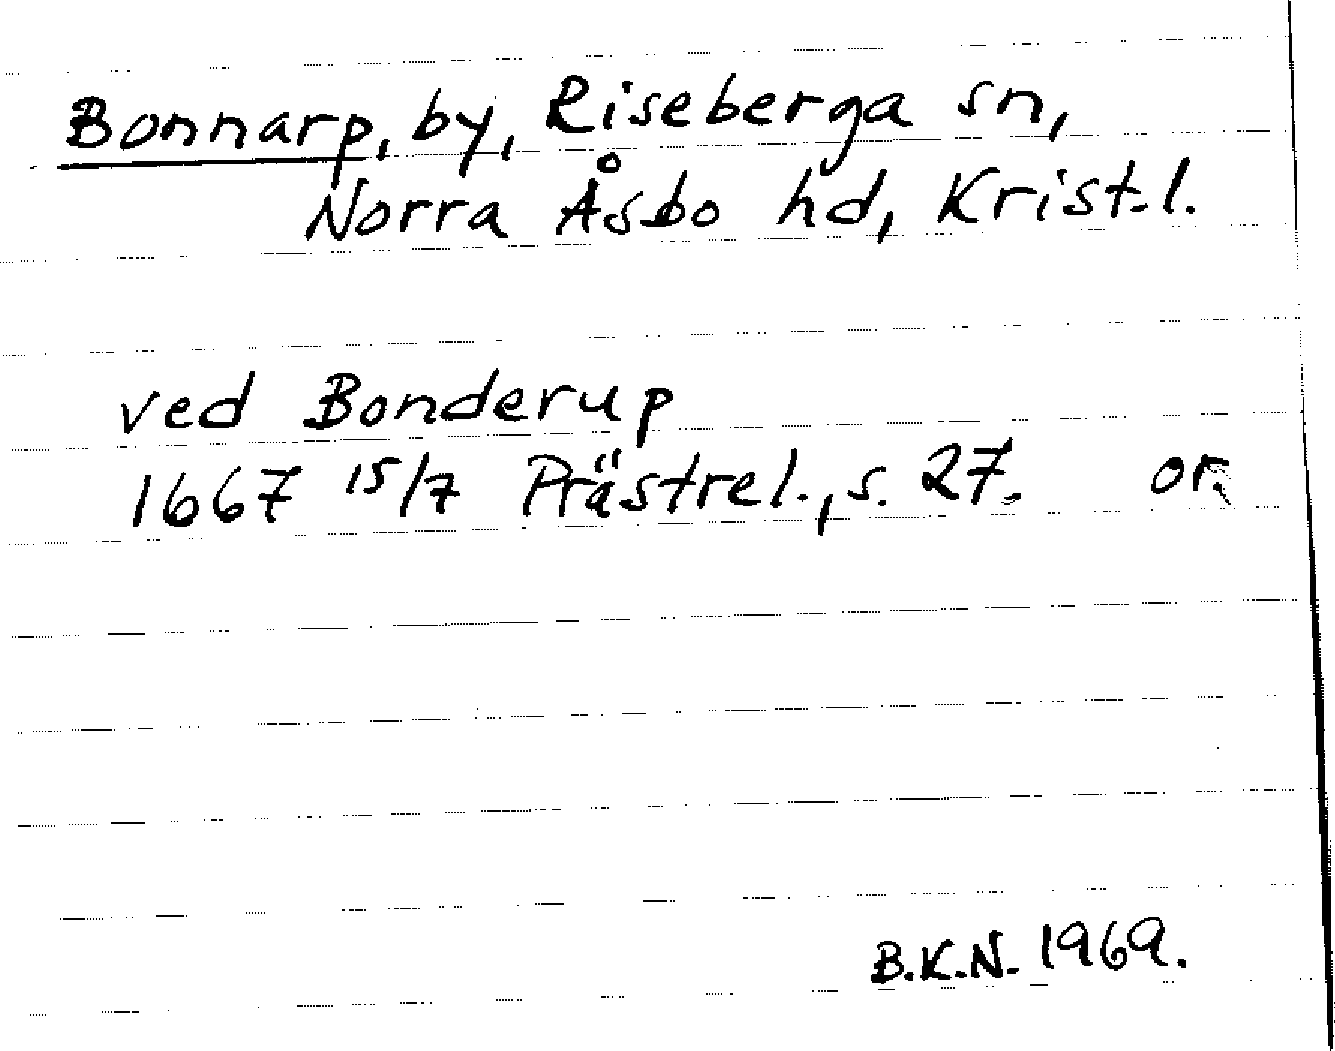 Bonnarp, by, Riseberga sn,
Norra Åsbo hd, Krist.l.
ved Bonderup
1667 15/7 Prästrel., s. 27. or.
B.K.N. 1969.